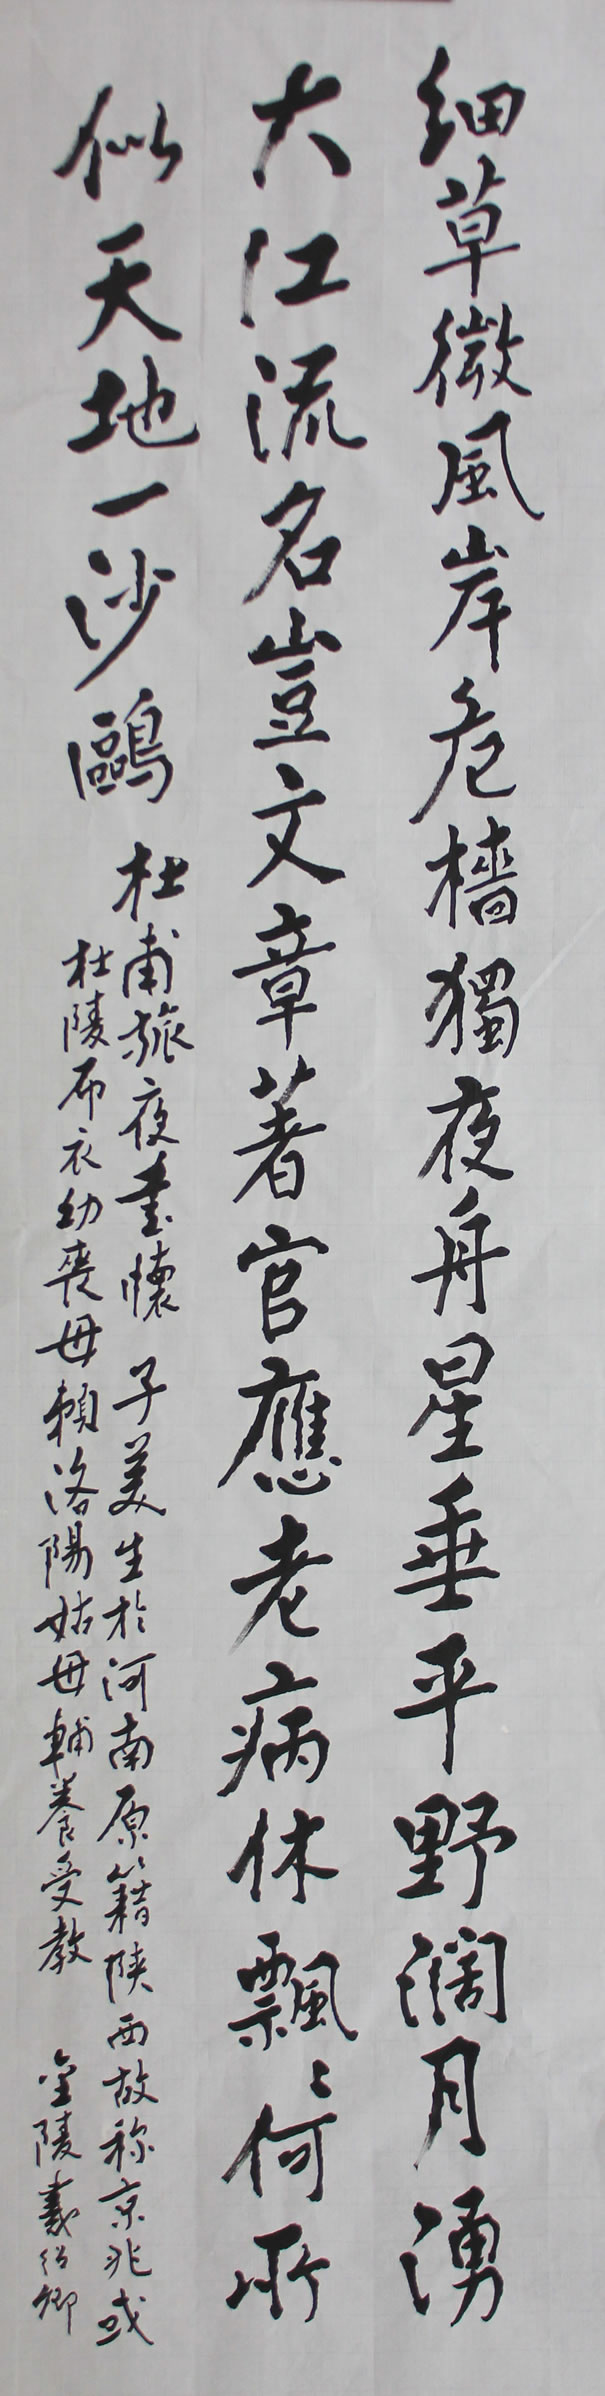 细草微風岸危檣獨夜舟星垂平野濶月湧
大江流名豈文章著官應老病休飄〻何所
似天地一沙鷗
杜甫旅夜書懷 子美生於河南原籍陕西故称京兆或
杜陵布衣幼喪母賴洛陽姑母輔養受教 金陵